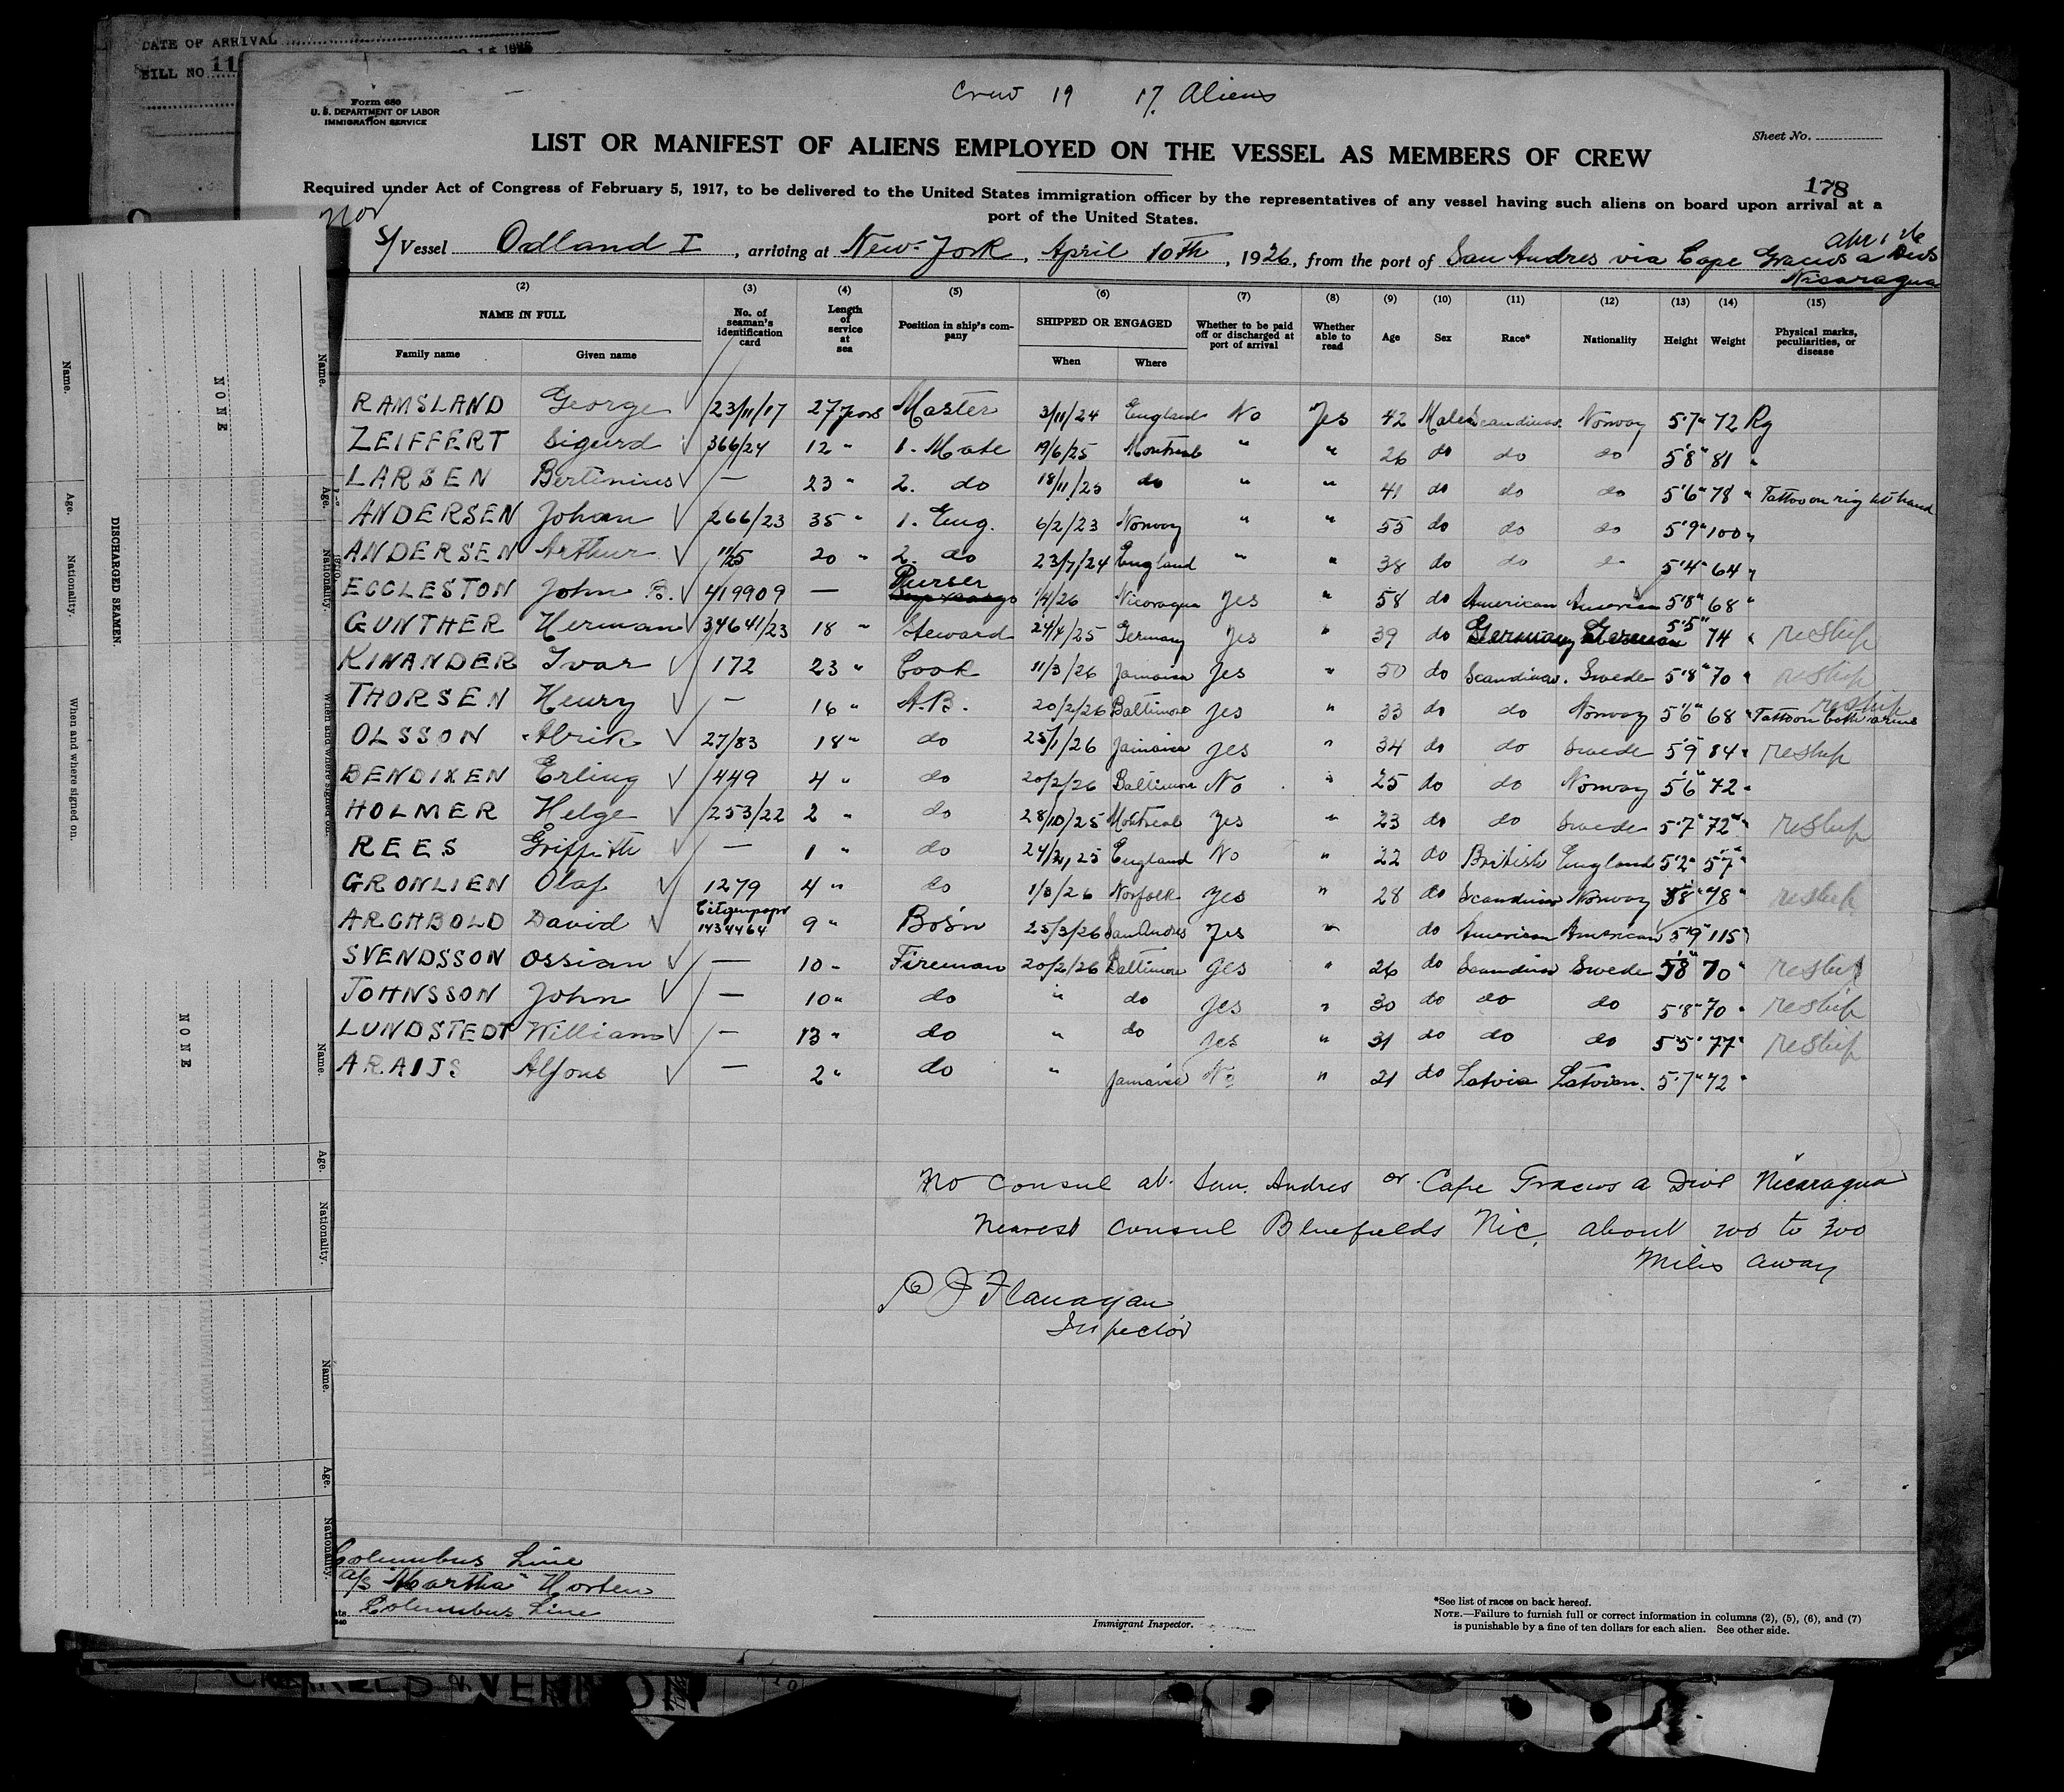 DATE OF ARRIVAL
BILL NO 11
Crew 19 17 Aliens
Form 680
U. S. DEPARTMENT OF LABOR
IMMIGRATION SERVICE
Sheet No.
LIST OR MANIFEST OF ALIENS EMPLOYED ON THE VESSEL AS MEMBERS OF CREW
178
Required under Act of Congress of February 5, 1917, to be delivered to the United States immigration officer by the representatives of any vessel having such aliens on board upon arrival at a
port of the United States.
Nor
S/ Vessel Odland I, arriving at New-York, April 10th, 1926, from the port of San Andres via Cape Gracias a Dios
Nicaragua
(2) (3) (4) (5) (6) (7) (8) (9) (10) (11) (12) (13) (14) (15)
NAME IN FULL No. of seaman's identification card Length of service at sea Position in ship's company SHIPPED OR ENGAGED Whether to be paid off or discharged at port of arrival Whether able to read Age Sex Race* Nationality Height Weight Physical marks, peculiarities, or disease
Family name Given name When Where
RAMSLAND George 23/11/17 27 years Master 3/11/24 England No Yes 42 Male Scandinav. Norway 5'7" 72 Kg
ZEIFFERT Sigurd 366/24 12 " 1. Mate 19/6/25 Montreal " " 26 do do do 5'8" 81 "
LARSEN Bertinius — 23 " 2. do 18/11/25 do " " 41 do do do 5'6" 78 " Tattoo on right hand
ANDERSEN Johan 266/23 35 " 1. Eng. 6/2/23 Norway " " 55 do do do 5'9" 100 "
ANDERSEN Arthur 11/25 20 " 2. do 23/7/24 England " " 38 do do do 5'4" 64 "
ECCLESTON John B. 419909 — Purser 1/4/26 Nicaragua Yes " 58 do American American 5'8" 68 "
GUNTHER Herman 34641/23 18 " Steward 24/4/25 Germany Yes " 39 do Germany German 5'5" 74 " reship
KINANDER Ivar 172 23 " Cook 11/3/26 Jamaica Yes " 50 do Scandinav. Swede 5'8" 70 " reship
THORSEN Henry — 16 " A.B. 20/2/26 Baltimore Yes " 33 do do Norway 5'6" 68 " Tattoo on both arms reship
OLSSON Alrik 27/83 18 " do 25/1/26 Jamaica Yes " 34 do do Swede 5'9 84 " reship
BENDIXEN Erling 449 4 " do 20/2/26 Baltimore No " 25 do do Norway 5'6" 72 "
HOLMER Helge 253/22 2 " do 28/10/25 Montreal Yes " 23 do do Swede 5'7" 72 " reship
REES Griffith — 1 " do England No " 22 do British England 5'2" 57 "
GRONLIEN Olaf 1279 4 " do 1/3/26 Norfolk Yes " 28 do Scandinav Norway 5'8" 78 " reship
ARCHBOLD David 1434464 9 " Bos'n 25/3/26 San Andres Yes " do American American 5'9" 115 "
SVENDSSON Ossian — 10 " Fireman 20/2/26 Baltimore Yes " 26 do Scandinav Swede 5'8" 70 " reship
JOHNSSON John — 10 " do " do Yes " 30 do do do 5'8" 70 " reship
LUNDSTEDT William — 13 " do " do Yes " 31 do do do 5'5" 77 " reship
ARAIJS Alfons — 2 " do " Jamaica No " 21 do Latvia Latvian. 5'7" 72 "
No Consul at San Andres or Cape Gracias a Dios Nicaragua
Nearest Consul Bluefields Nic. about 200 to 300
Miles away
Flanagan
Inspector
Columbus Line
a/s "Martha" Horten
Columbus Line
Immigrant Inspector.
*See list of races on back hereof.
NOTE.—Failure to furnish full or correct information in columns (2), (5), (6), and (7)
is punishable by a fine of ten dollars for each alien. See other side.
DISCHARGED SEAMEN.
Name. Age. Nationality. When and where signed on.
NONE
Name. Age. Nationality. When and where signed on.
NONE
Name. Age. Nationality.
Name. Age. Nationality.